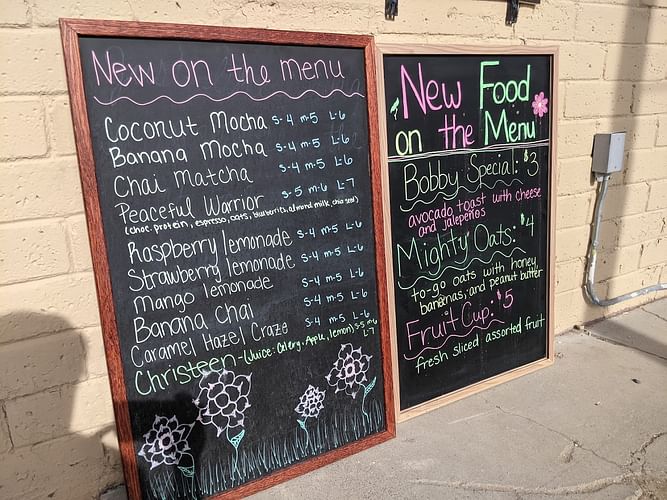 New on the menu
Coconut Mocha s-4 m-5 L-6
Banana Mocha s-4 m-5 L-6
Chai Matcha s-4 m-5 L-6
Peaceful Warrior s-5 m-6 L-7
(choc. protein, espresso, oats, blueberries, almond milk, chia seed)
Raspberry lemonade s-4 m-5 L-6
Strawberry lemonade s-4 m-5 L-6
Mango lemonade s-4 m-5 L-6
Banana Chai s-4 m-5 L-6
Caramel Hazel Craze s-4 m-5 L-6
Christeen-(Juice: Celery, Apple, lemon) s-5 m-6
L-7
New Food
on the Menu
Bobby Special: $3
avocado toast with cheese
and jalepeños
Mighty Oats: $4
to-go oats with honey,
bananas, and peanut butter
Fruit Cup: $5
fresh sliced assorted fruit